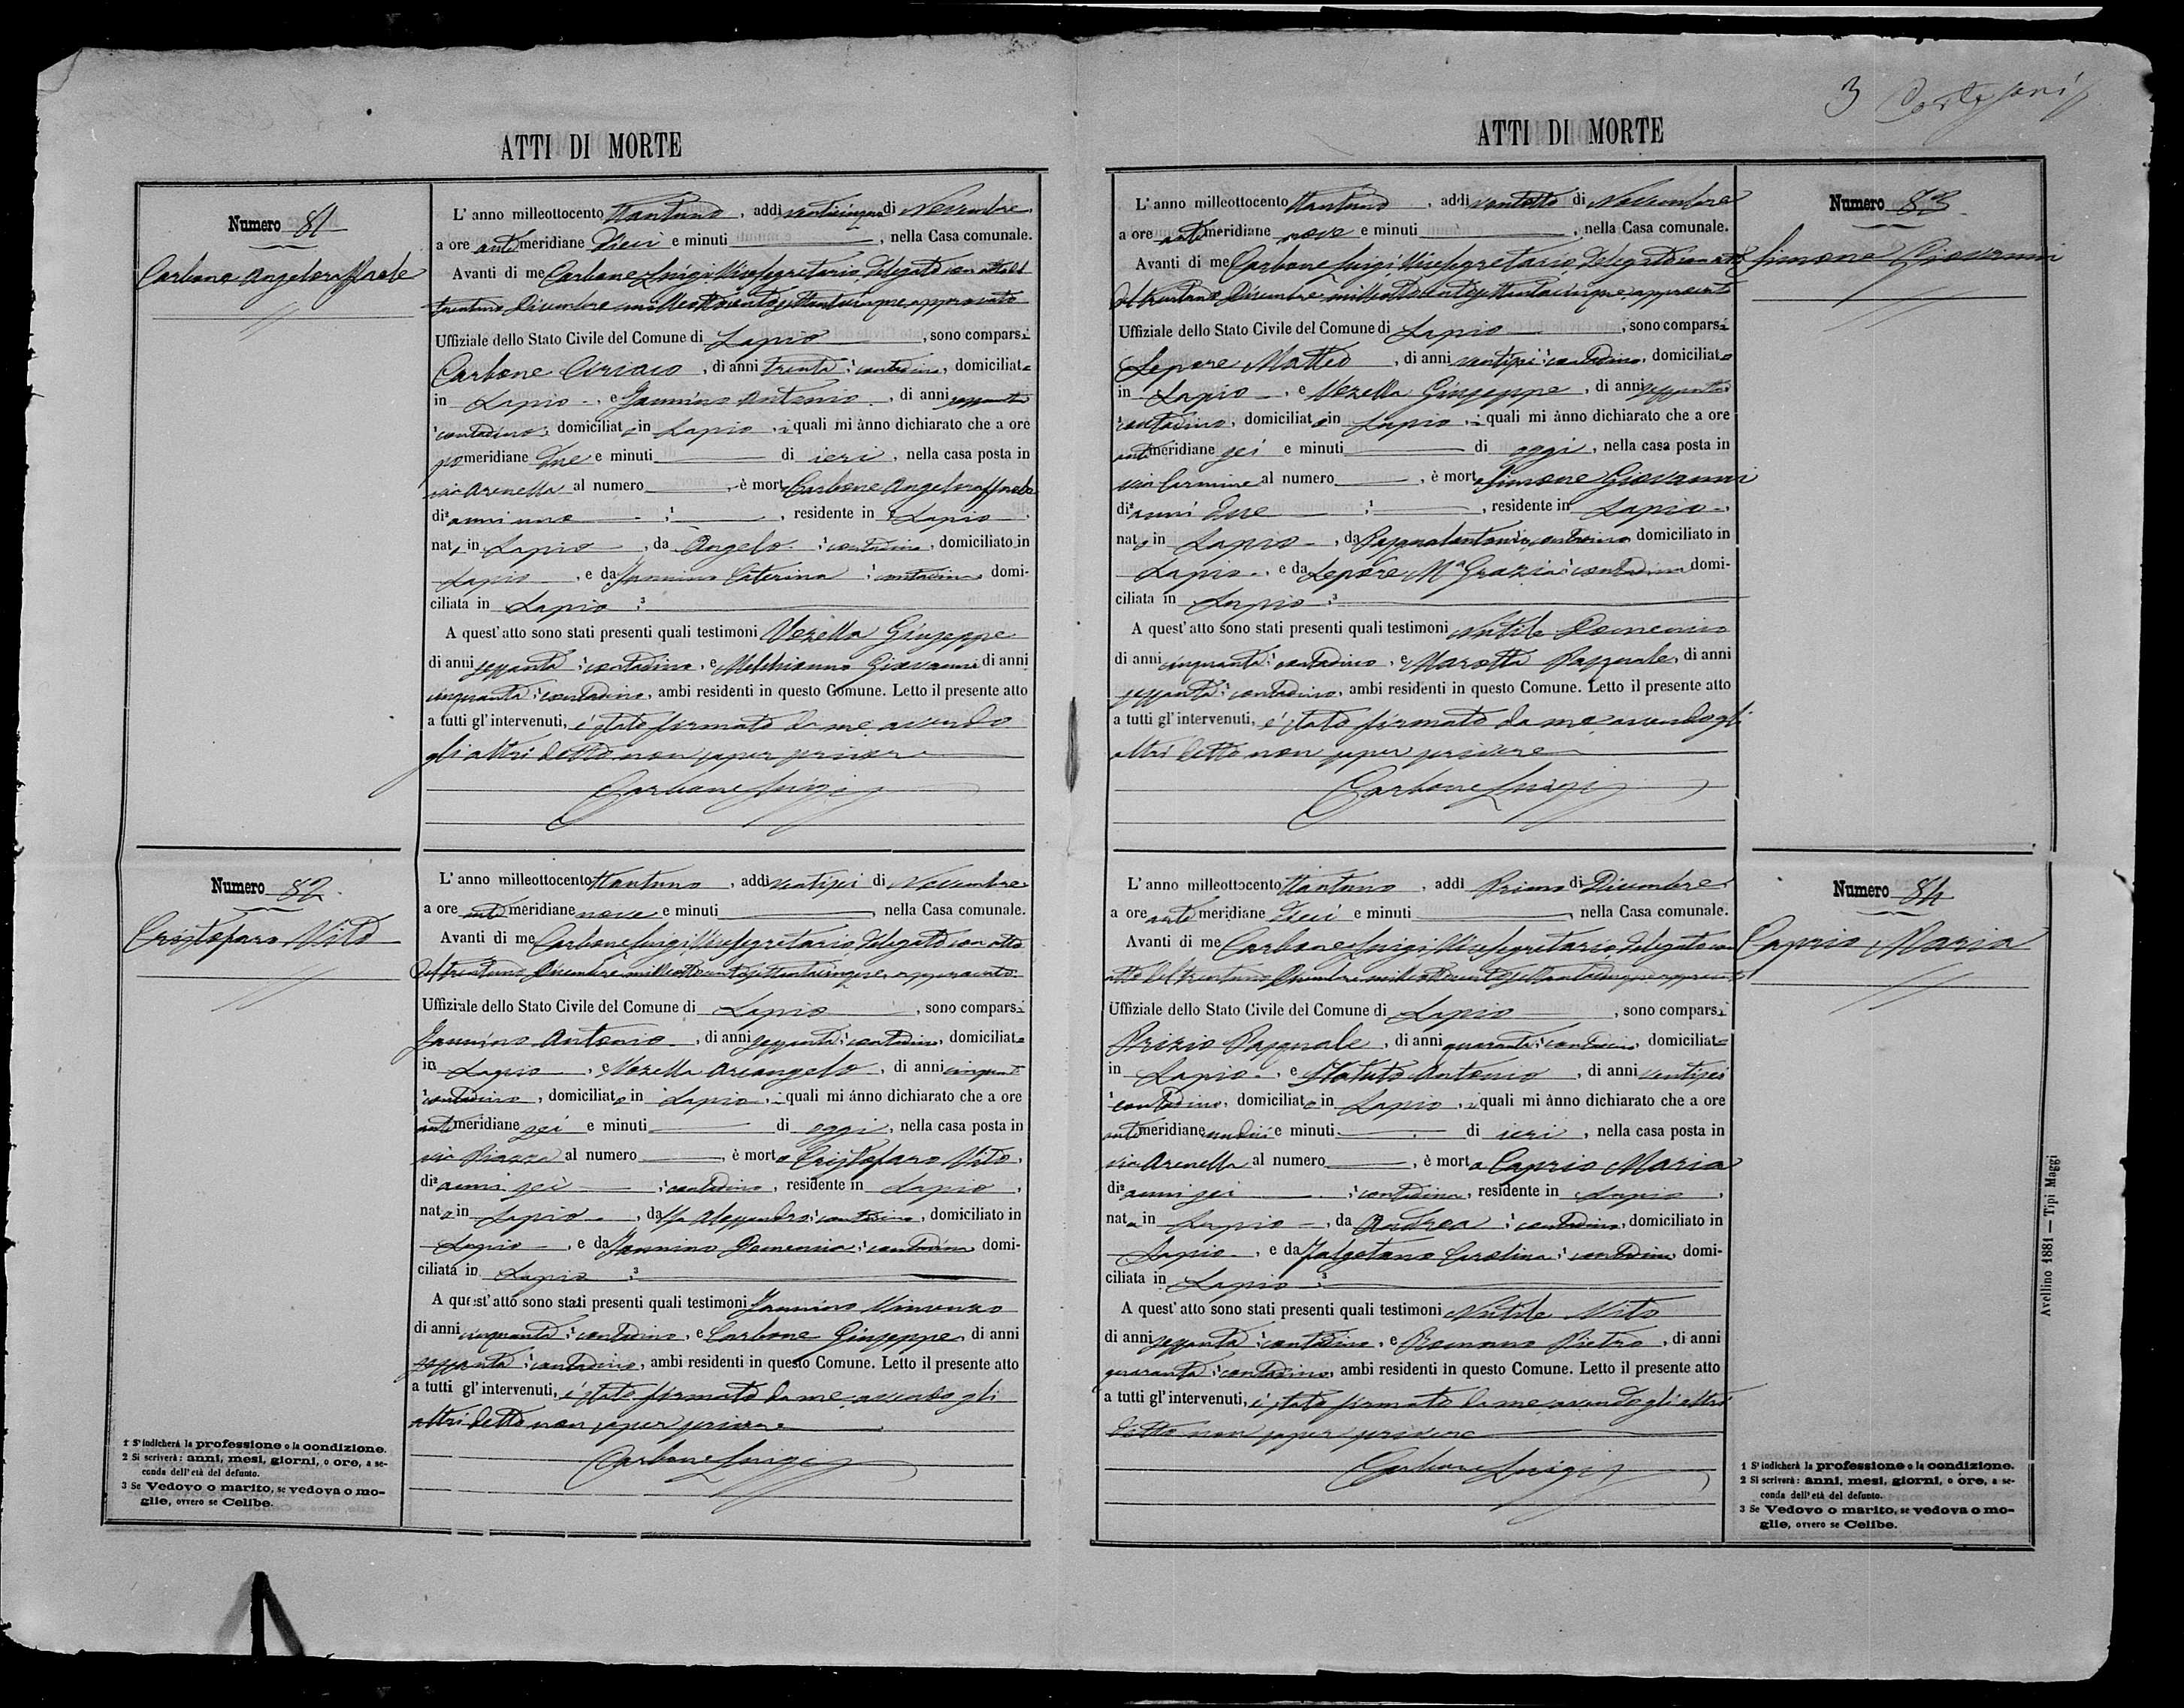 3 Cortesani
ATTI DI MORTE
Numero 81
Carbone Angeloraffaele
L' anno milleottocento ttantuno, addì venticinque di Novembre
a ore antimeridiane dieci e minuti , nella Casa comunale.
Avanti di me Carbone Luigi Vicesegretario delegato con atto del
trentuno Dicembre milleottocentosettantacinque approvato
Uffiziale dello Stato Civile del Comune di Lapio , sono comparsi
Carbone Ciriaco , di anni trenta ;¹ contadino, domiciliato
in Lapio , e Jannino Antonio , di anni sessanta
¹contadino, domiciliato in Lapio , i quali mi ànno dichiarato che a ore
pomeridiane due e minuti di ieri , nella casa posta in
via Arenella al numero , è morto Carbone Angeloraffaele
di² anni uno ;¹ , residente in Lapio ,
nato in Lapio , da Angelo ;¹ contadino, domiciliato in
Lapio , e da Jannino Caterina ;¹ contadina, domi-
ciliata in Lapio ;³
A quest' atto sono stati presenti quali testimoni Vozella Giuseppe
di anni sessanta ;¹ contadino, e Melchionno Giovanni di anni
cinquanta ;¹ contadino, ambi residenti in questo Comune. Letto il presente atto
a tutti gl' intervenuti, è stato firmato da me avendo
gli altri detto non saper scrivere
Carbone Luigi
Numero 82
Cristofaro Vito
L' anno milleottocento ttantuno , addì ventisei di Novembre
a ore antimeridiane nove e minuti , nella Casa comunale.
Avanti di me Carbone Luigi Vicesegretario delegato con atto
del trentuno Dicembre milleottocentosettantacinque approvato
Uffiziale dello Stato Civile del Comune di Lapio , sono comparsi
Jannino Antonio , di anni sessanta ;¹ contadino, domiciliato
in Lapio , e Vozella Arcangelo , di anni cinquanta
¹contadino , domiciliato in Lapio , i quali mi ànno dichiarato che a ore
antimeridiane sei e minuti di oggi , nella casa posta in
via Piazza al numero , è morto Cristofaro Vito ,
di² anni sei ;¹ contadino , residente in Lapio ,
nato in Lapio , da fu Alessandro ;¹ contadino , domiciliato in
Lapio , e da Jannino Domenica ;¹ contadina domi-
ciliata in Lapio ;³
A quest' atto sono stati presenti quali testimoni Jannino Vincenzo
di anni cinquanta ;¹ contadino , e Carbone Giuseppe di anni
sessanta ;¹ contadino, ambi residenti in questo Comune. Letto il presente atto
a tutti gl' intervenuti, è stato firmato da me avendo gli
altri detto non saper scrivere
Carbone Luigi
1 S' indicherà la professione o la condizione.
2 Si scriverà: anni, mesi, giorni, o ore, a se-
conda dell' età del defunto.
3 Se Vedovo o marito, se vedova o mo-
glie, ovvero se Celibe.
ATTI DI MORTE
Numero 83
Simone Giovanni
L' anno milleottocento ttantuno , addì ventotto di Novembre
a ore antimeridiane nove e minuti , nella Casa comunale.
Avanti di me Carbone Luigi Vicesegretario delegato con atto
del trentuno Dicembre milleottocentosettantacinque approvato
Uffiziale dello Stato Civile del Comune di Lapio , sono comparsi
Lepore Matteo , di anni ventisei ;¹ contadino, domiciliato
in Lapio , e Vozella Giuseppe , di anni sessanta
¹contadino, domiciliato in Lapio , i quali mi ànno dichiarato che a ore
antimeridiane sei e minuti di oggi , nella casa posta in
via Carmine al numero , è morto Simone Giovanni
di² anni due ;¹ , residente in Lapio ,
nato in Lapio , da Pasqualantonio, contadino domiciliato in
Lapio , e da Lepore Mª Grazia ;¹ contadina domi-
ciliata in Lapio ;³
A quest' atto sono stati presenti quali testimoni Nutile Domenico
di anni cinquanta ;¹ contadino , e Marotta Pasquale, di anni
sessanta ;¹ contadino, ambi residenti in questo Comune. Letto il presente atto
a tutti gl' intervenuti, è stato firmato da me avendo gli
altri detto non saper scrivere
Carbone Luigi
Numero 84
Caprio Maria
L' anno milleottocento ttantuno , addì Primo di Dicembre
a ore antimeridiane dieci e minuti , nella Casa comunale.
Avanti di me Carbone Luigi Vicesegretario delegato con
atto del trentuno Dicembre milleottocentosettantacinque approvato
Uffiziale dello Stato Civile del Comune di Lapio , sono comparsi
Prizio Pasquale , di anni quaranta ;¹ contadino, domiciliato
in Lapio , e Statuto Antonio , di anni ventisei
¹contadino, domiciliato in Lapio , i quali mi ànno dichiarato che a ore
antimeridiane undici e minuti di ieri , nella casa posta in
via Arenella al numero , è morta Caprio Maria
di² anni sei ;¹ contadina, residente in Lapio ,
nata in Lapio , da Andrea ;¹ contadino, domiciliato in
Lapio , e da Falgetano Carolina ;¹ contadina domi-
ciliata in Lapio ;³
A quest' atto sono stati presenti quali testimoni Nutile Vito
di anni sessanta ;¹ contadino , e Romano Pietro , di anni
quaranta ;¹ contadino, ambi residenti in questo Comune. Letto il presente atto
a tutti gl' intervenuti, è stato firmato da me avendo gli altri
detto non saper scrivere
Carbone Luigi
1 S' indicherà la professione o la condizione.
2 Si scriverà: anni, mesi, giorni, o ore, a se-
conda dell' età del defunto.
3 Se Vedovo o marito, se vedova o mo-
glie, ovvero se Celibe.
Avellino 1881 — Tipi Maggi